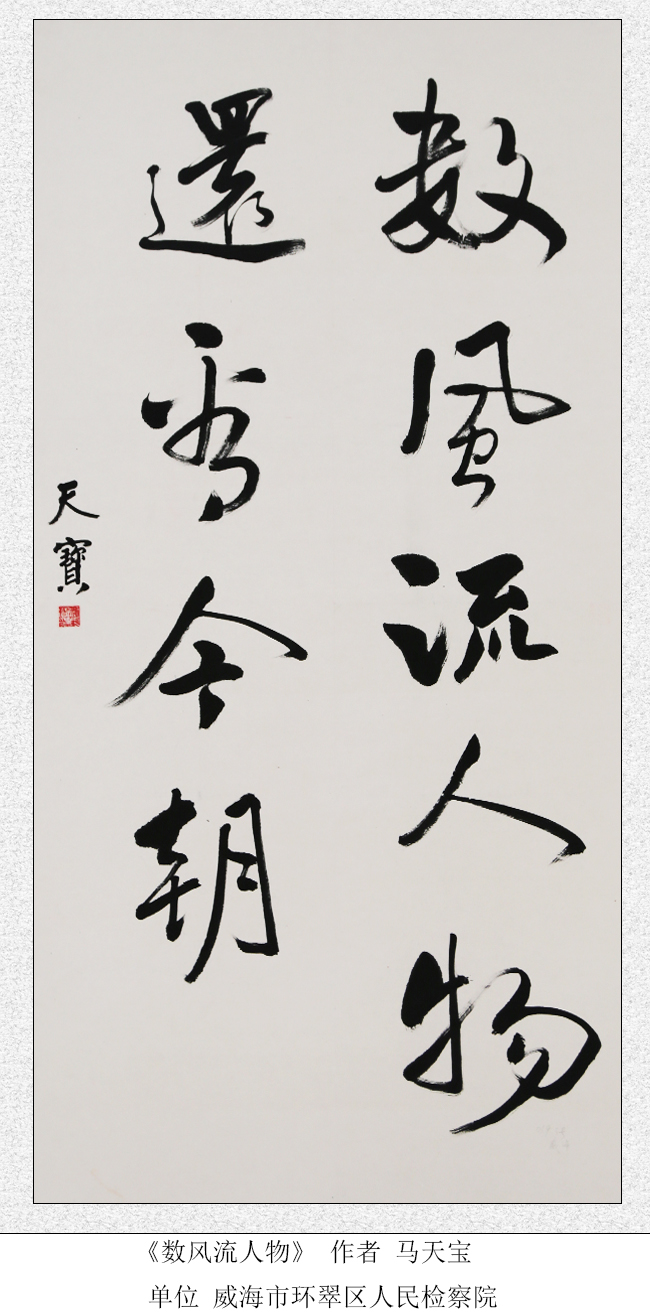 数風流人物
還看今朝
天寶
《数风流人物》 作者 马天宝
单位 威海市环翠区人民检察院